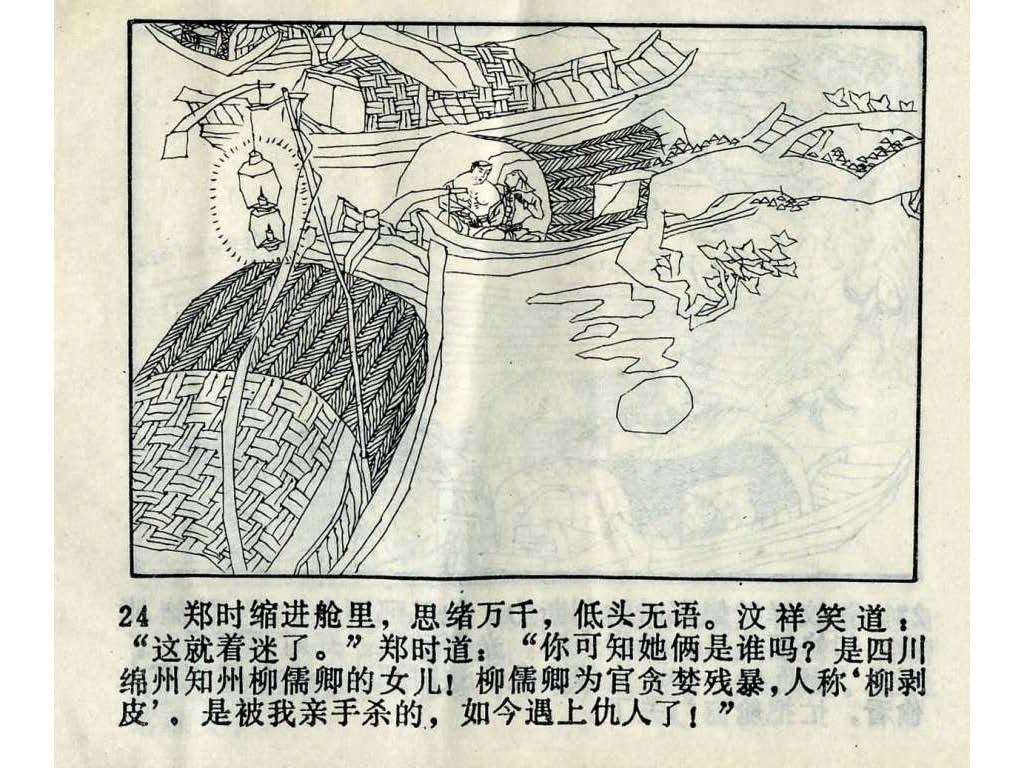 24 郑时缩进舱里，思绪万千，低头无语。汶祥笑道：
“这就着迷了。”郑时道：“你可知她俩是谁吗？是四川
绵州知州柳儒卿的女儿！柳儒卿为官贪婪残暴，人称‘柳剥
皮’。是被我亲手杀的，如今遇上仇人了！”